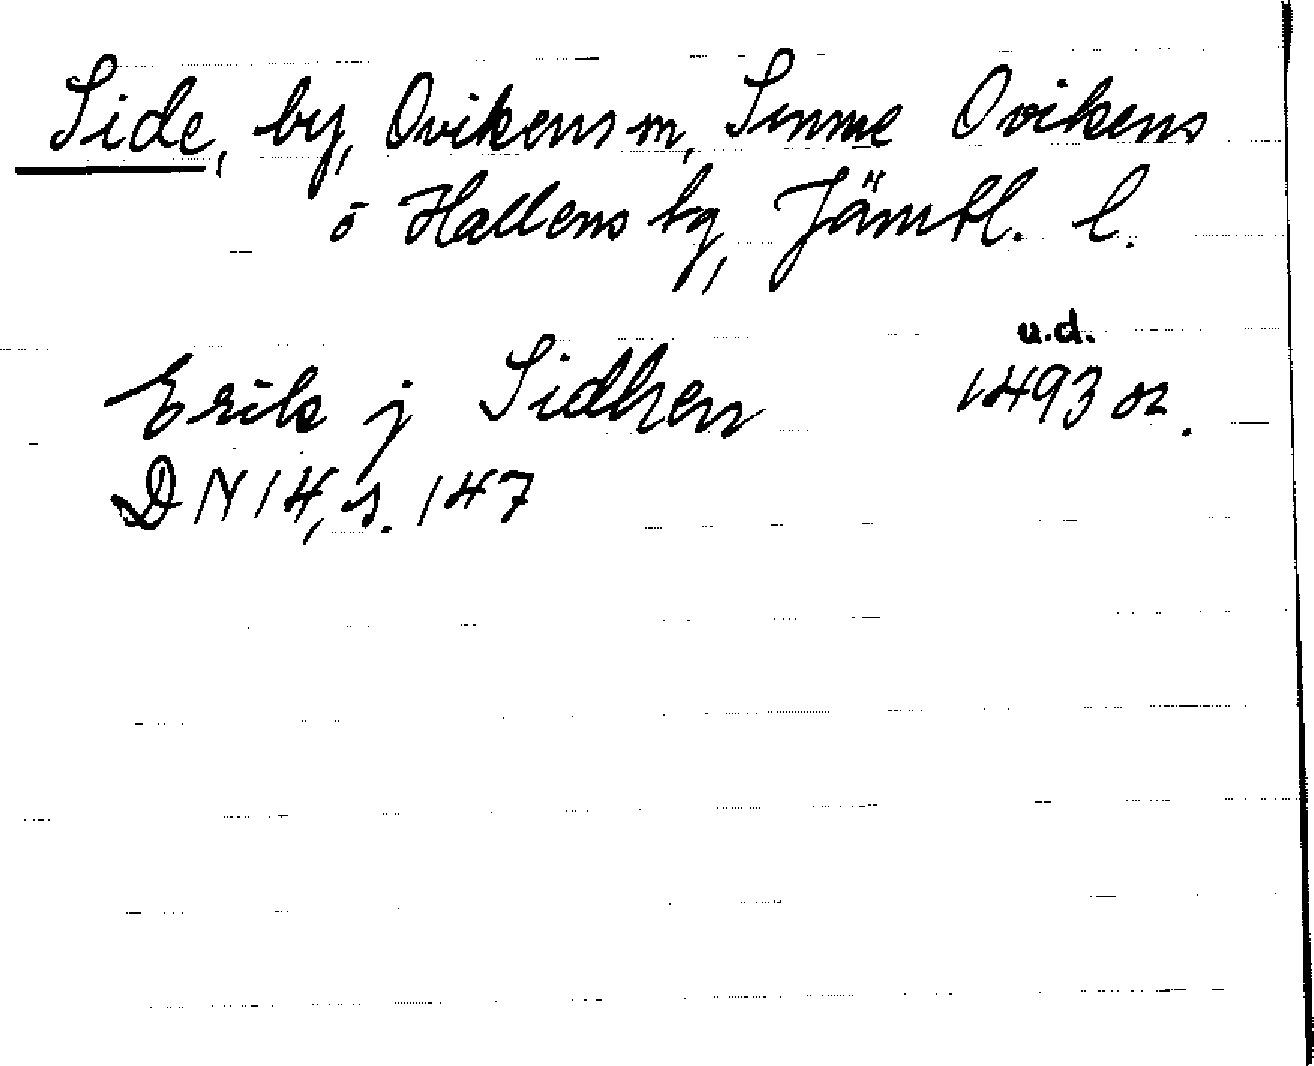 Side, by, Ovikens sn, Sunne Ovikens
o Hallens tg, Jämtl. l.
u.d.
Erik j Sidhen 1493 or.
DN 14, s. 147